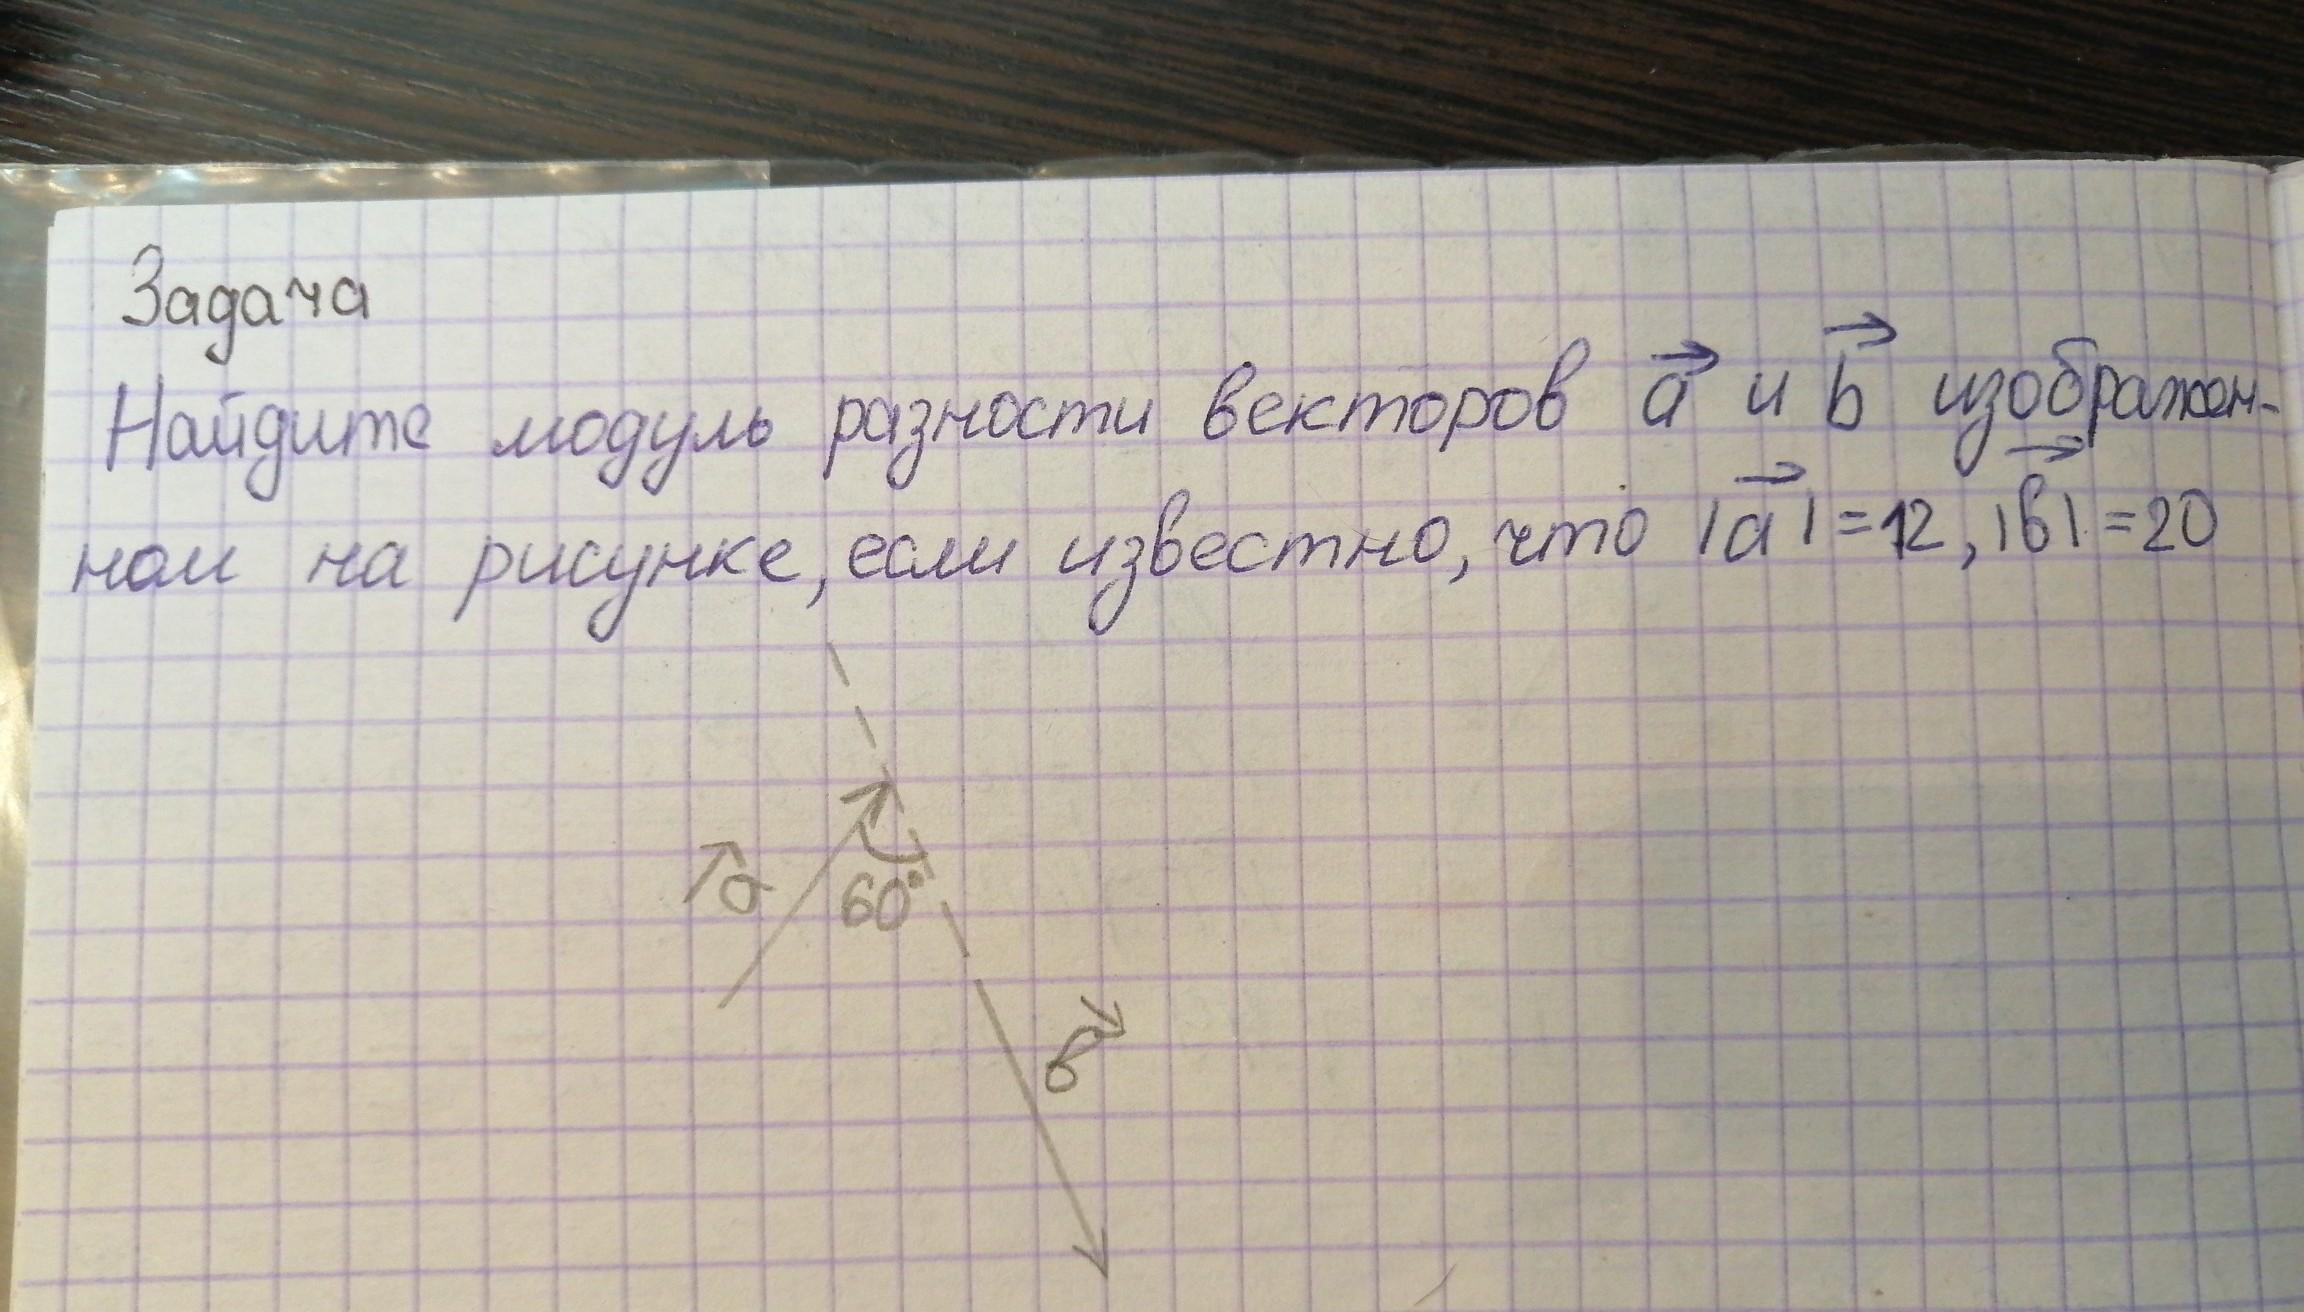 Задача
Найдите модуль разности векторов a и b изображен-
ном на рисунке, если известно, что |a|=12, |b|=20
a
60°
b